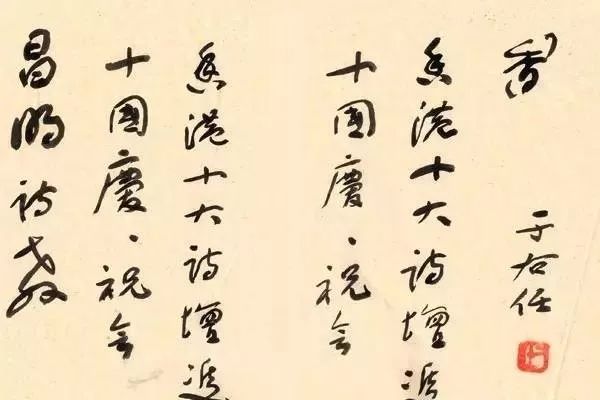 香
于右任
香港十大詩壇
十國慶、祝会
香港十大詩壇
十國慶、祝会
昌明詩教